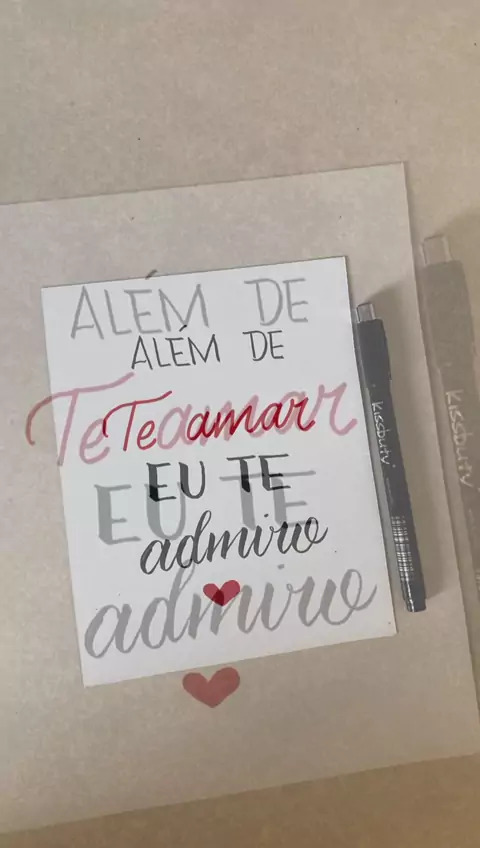 ALÉM DE
Te amar
EU TE
admiro
ALÉM DE
Te amar
EU TE
admiro
Kissbuty
Kissbuty